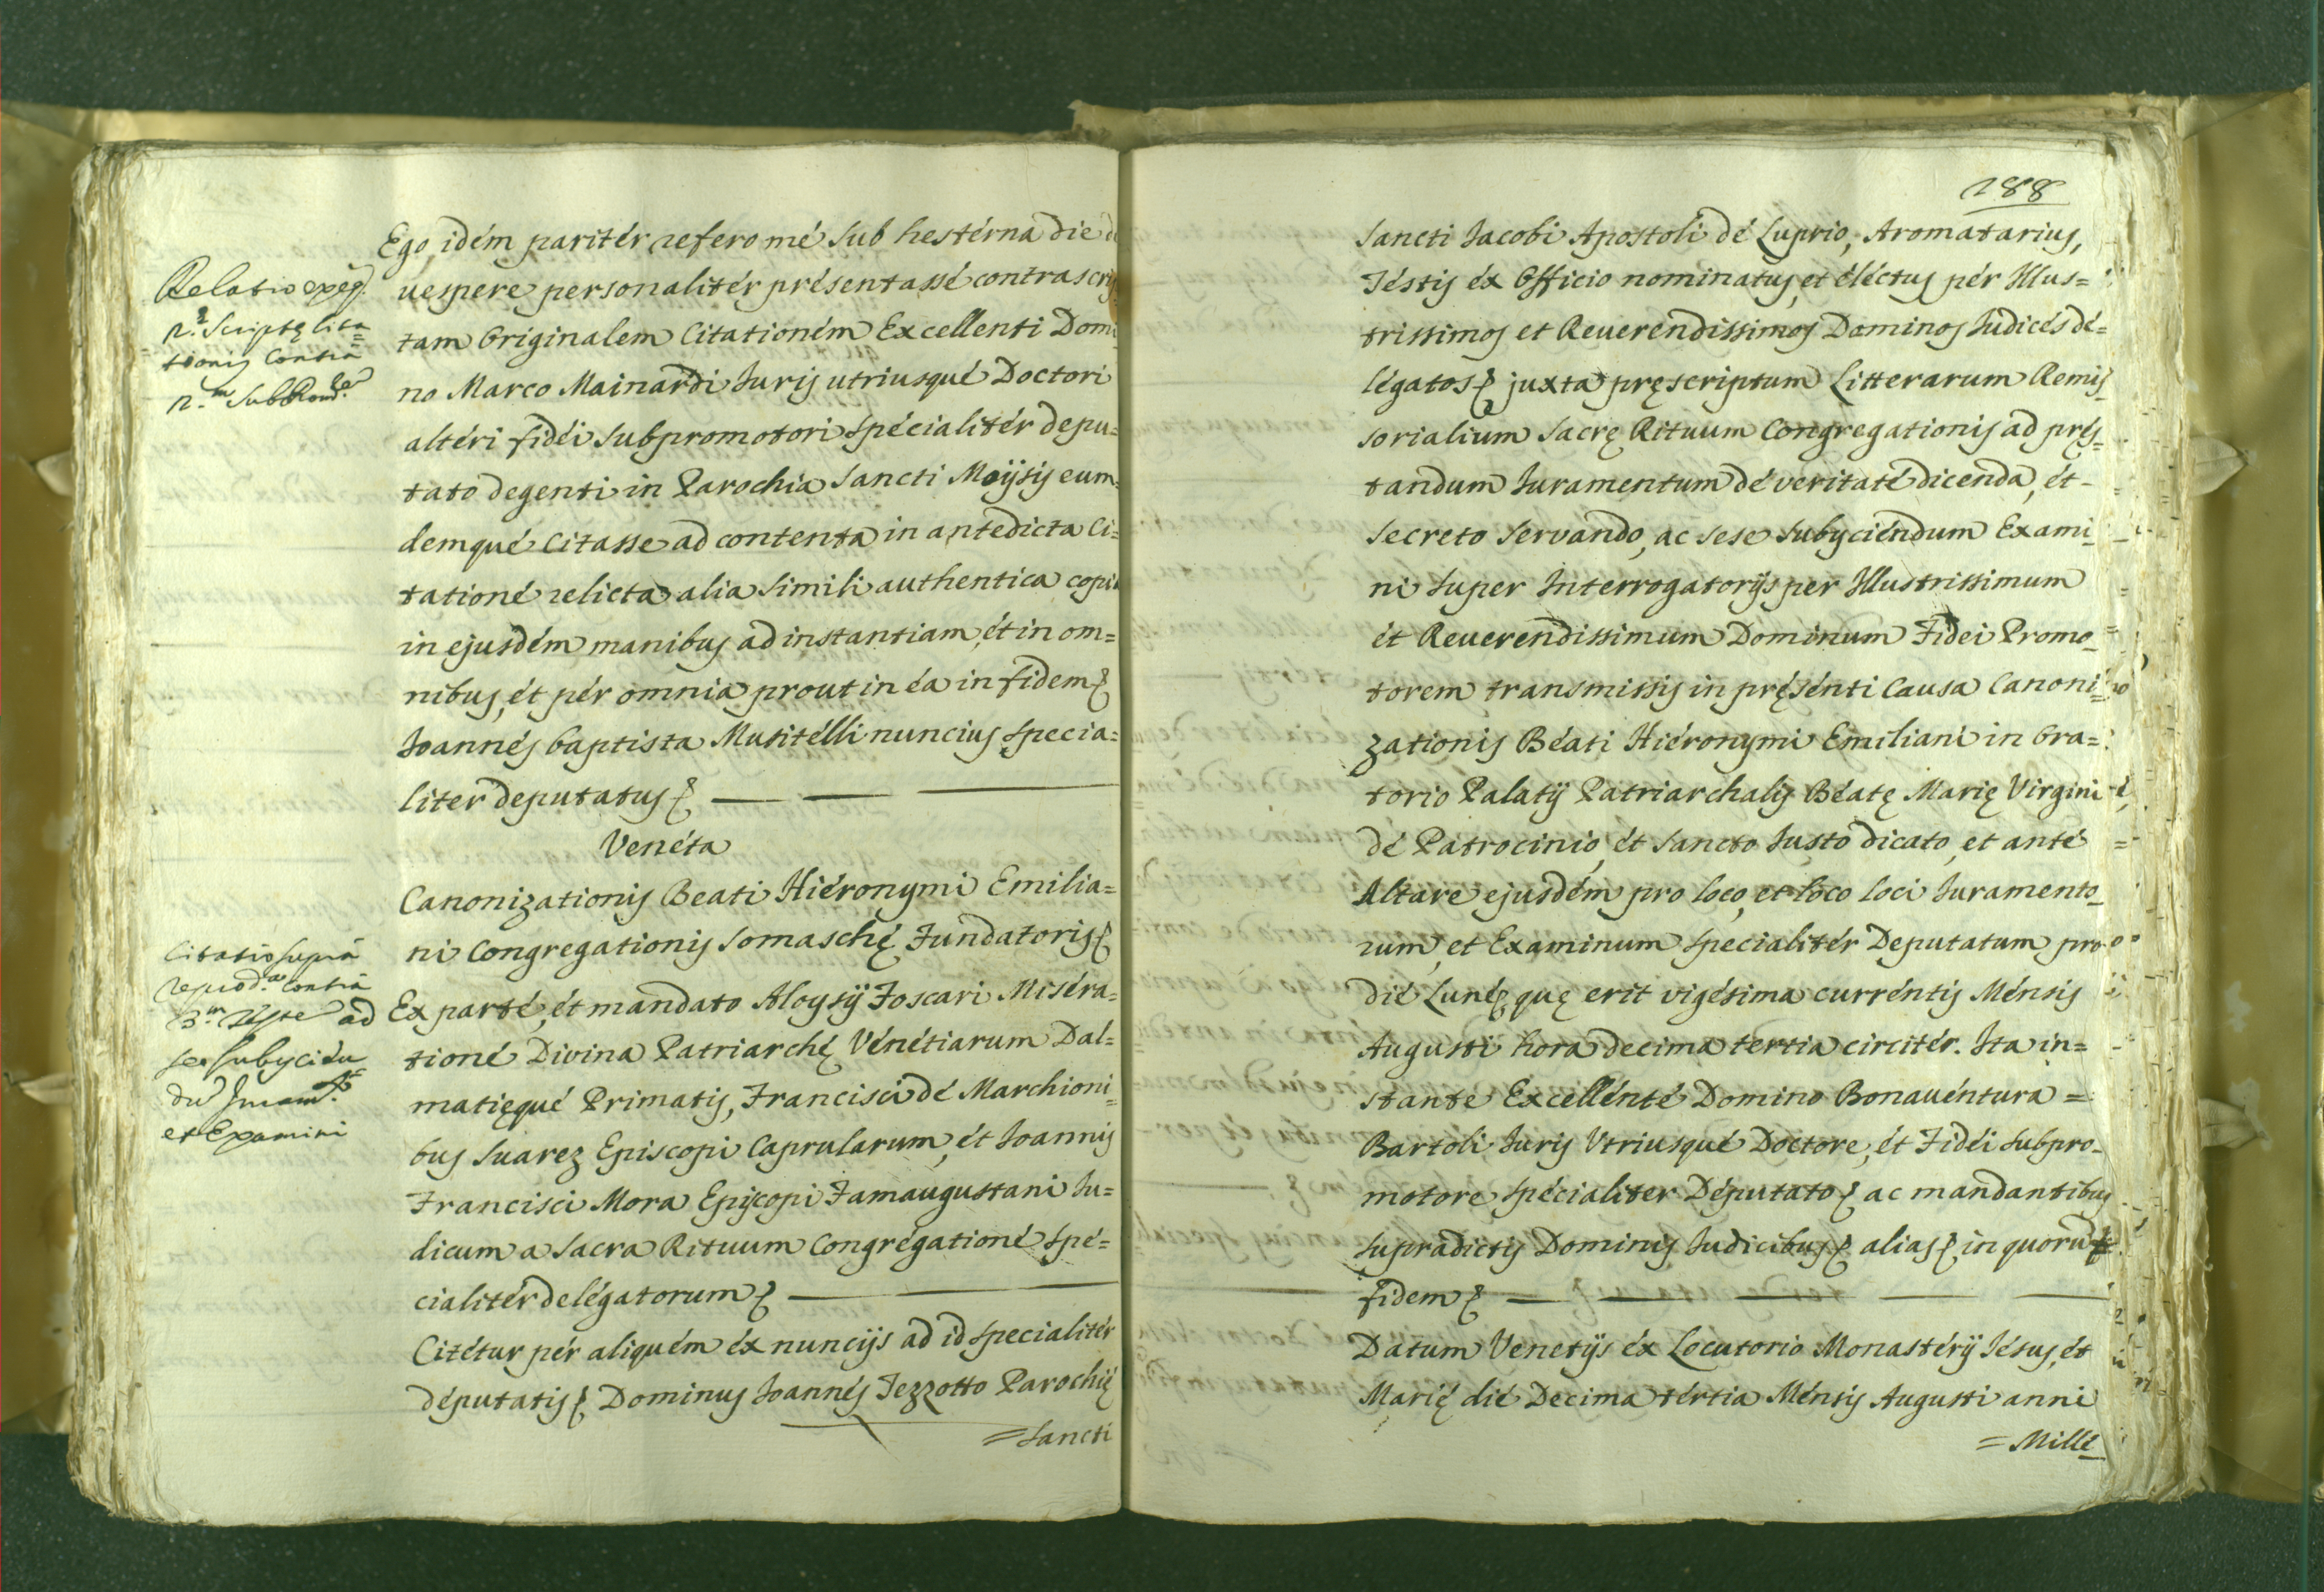 Ego idém paritér refero mé sub hestérna die de
uespere personalitér présentassé contrascrip
tam Originalem Citationém Excellenti Domi
no Marco Mainardi Iuris utriusqué Doctori
altéri fidéi subpromotori spécialitér depu=
tato degenti in Parochia Sancti Moÿsis eum=
demqué citasse ad contenta in antedicta Ci=
tationé relicta alia simili authentica copia
in ejusdém manibus ad instantiam, ét in om=
nibus, ét pér omnia prout in éa in fidem
Ioannés baptista Mutitélli nuncius specia=
liter deputatus
Venéta
Canonizationis Beati Hiéronymi Emilia=
ni Congregationis Somaschę Fundatoris
Ex parté, ét mandato Aloysÿ Foscari Miséra=
tioné Divina Patriarchę Vénétiarum Dal=
matięqué Primatis, Francisci dé Marchioni=
bus Suarez Episcopi Caprularum, ét Ioannis
Francisci Mora Episcopi Famaugustani Iu=
dicum a Sacra Rituum Congrégationé spé=
cialitér delégatorum
Citétur pér aliquém éx nuncijs ad id specialitér
députatis Dominus Ioannés Tezzotto Parochię
=Sancti
Relatio exeq.
n.ę Scriptę Cita=
tionis Contra
n.m SubProm.
Citatio supra
reprod.a Contra
3.m Teste ad
se subycién
du Juram.to
et Examini
188
Sancti Iacobi Apostoli dé Luprio, Aromatarius,
Téstis éx Officio nominatus, et éléctus pér Illus=
trissimos et Reuerendissimos Dominos Iudicés dé=
légatos juxta pręscriptum Litterarum Remis
sorialium Sacrę Rituum Congregationis ad pręs=
tandum Iuramentum dé veritaté dicenda, ét
secreto servando, ac sese subyciéndum Exami
ni super Interrogatorijs per Illustrissimum
ét Reuerendissimum Dominum Fidei Promo
torem transmissis in pręsénti Causa Canoni=
zationis Béati Hiéronymi Emiliani in Ora=
torio Palatÿ Patriarchalis Béatę Marię Virgini
dé Patrocinio, ét Sancto Iusto dicato, et anté
Altare ejusdém pro loco, et loco loci Iuramento
rum, et Examinum specialitér Deputatum pro
dié Lunę quę erit vigésima curréntis Ménsis
Augusti hora decima tertia circitér. Ita in=
stante Excellénté Domino Bonauéntura =
Bartoli Iuris Utriusqué Doctore, ét Fidéi subpro
motore spécialiter Députato ac mandantibus
supradictis Dominis Iudicibus alias in quorum
fidem
Datum Venetijs éx Locutorio Monastérÿ Iésus, ét
Marię dié Decima tértia Ménsis Augusti anni
= Millé